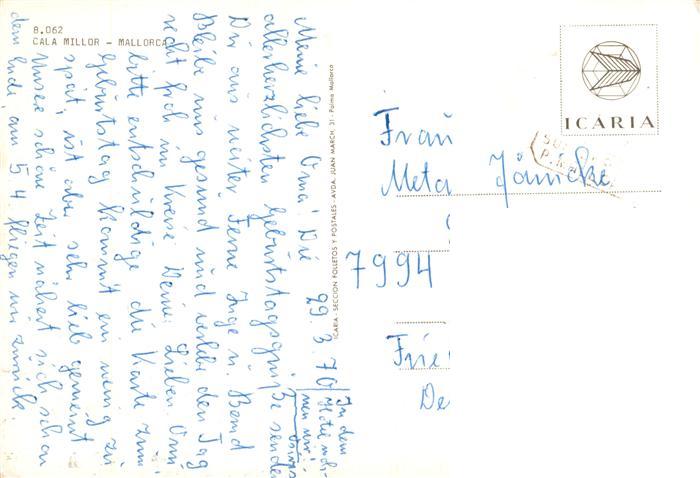 8.062
CALA MILLOR – MALLORCA
29. 3. 70
Meine liebe Oma! Die
allerherzlichsten Geburtstagsgrüße senden
Dir aus weiter Ferne Inge u. Bernd
Bleibe uns gesund und verlebe den Tag
recht froh im Kreise Deiner Lieben. Omi,
bitte entschuldige die Karte zum
Geburtstag kommt ein wenig zu
spät, ist aber sehr lieb gemeint
Unsere schöne Zeit nähert sich schon
dem Ende, am 5.4 fliegen wir zurück.
In dem
Hotel woh-
nen wir!
ICARIA - SECCION FOLLETOS Y POSTALES - AVDA. JUAN MARCH, 31 - Palma Mallorca
ICARIA
Frau
Meta Jänicke
7994
Frie
De